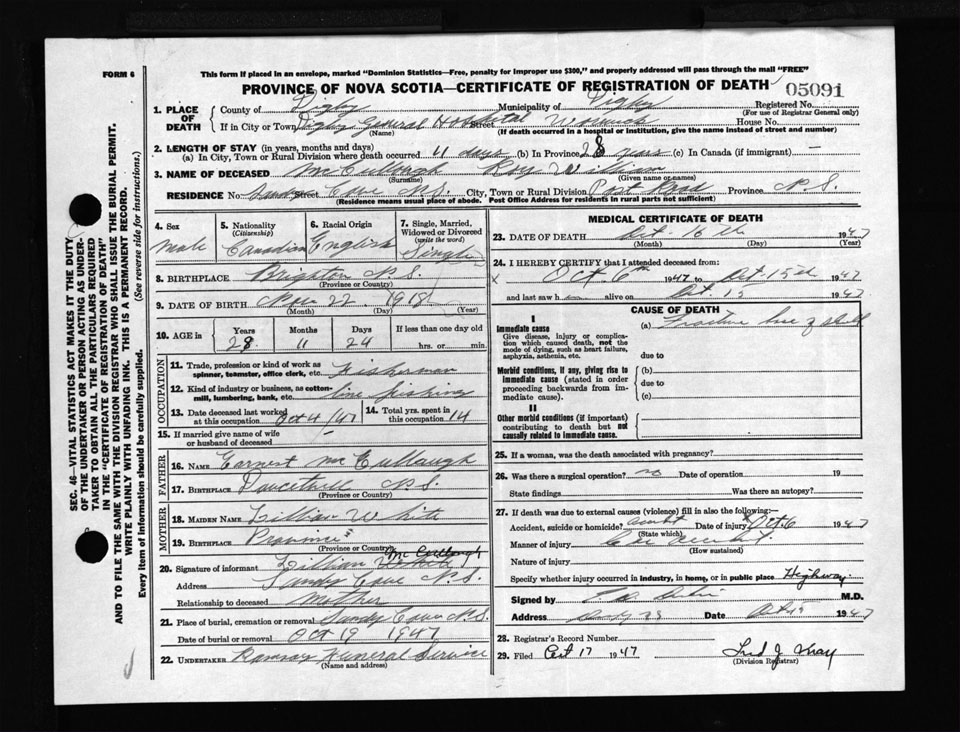 FORM 6
This form if placed in an envelope, marked "Dominion Statistics—Free, penalty for improper use $300," and properly addressed will pass through the mail "FREE"
PROVINCE OF NOVA SCOTIA—CERTIFICATE OF REGISTRATION OF DEATH 05091
1. PLACE OF DEATH { County of Digby Municipality of Digby Registered No.
(For use of Registrar General only)
If in City or Town Digby General Hospital Street Warwick House No.
(Name) (If death occurred in a hospital or institution, give the name instead of street and number)
2. LENGTH OF STAY (in years, months and days)
(a) In City, Town or Rural Division where death occurred 11 days (b) In Province 28 years (c) In Canada (if immigrant) —
3. NAME OF DECEASED McCullough Roy
(Surname) (Given name or names)
RESIDENCE No. Sandy Street Cove N.S. City, Town or Rural Division Post Road Province N.S.
(Residence means usual place of abode. Post Office Address for residents in rural parts not sufficient)
4. Sex
Male
5. Nationality
(Citizenship)
Canadian
6. Racial Origin
English
7. Single, Married, Widowed or Divorced
(write the word)
Single
8. BIRTHPLACE Brighton N.S.
(Province or Country)
9. DATE OF BIRTH Nov 22 1918
(Month) (Day) (Year)
10. AGE in Years Months Days If less than one day old
28 11 24 hrs. or min.
OCCUPATION
11. Trade, profession or kind of work as spinner, teamster, office clerk, etc. Fisherman
12. Kind of industry or business, as cotton-mill, lumbering, bank, etc. line fishing
13. Date deceased last worked at this occupation Oct 4/47
14. Total yrs. spent in this occupation 14
15. If married give name of wife or husband of deceased —
FATHER
16. NAME Earnest McCullaugh
17. BIRTHPLACE N.S.
(Province or Country)
MOTHER
18. MAIDEN NAME Lillian White
19. BIRTHPLACE
(Province or Country)
20. Signature of informant Lillian McCullough
Address Sandy Cove N.S.
Relationship to deceased Mother
21. Place of burial, cremation or removal Sandy Cove N.S.
Date of burial or removal Oct 19 1947
22. UNDERTAKER Ramsay Funeral Service
(Name and address)
MEDICAL CERTIFICATE OF DEATH
23. DATE OF DEATH Oct 16th 1947
(Month) (Day) (Year)
24. I HEREBY CERTIFY that I attended deceased from:
Oct 6th 1947 to Oct. 15th 1947
and last saw him alive on Oct. 15 1947
CAUSE OF DEATH
I
Immediate cause
Give disease, injury or complication which caused death, not the mode of dying, such as heart failure, asphyxia, asthenia, etc.
(a) Fracture base of skull
due to
Morbid conditions, if any, giving rise to immediate cause (stated in order proceeding backwards from immediate cause).
(b)
due to
(c)
II
Other morbid conditions (if important) contributing to death but not causally related to immediate cause.
25. If a woman, was the death associated with pregnancy?
26. Was there a surgical operation? no Date of operation 19
State findings Was there an autopsy?
27. If death was due to external causes (violence) fill in also the following:—
Accident, suicide or homicide? accident Date of injury Oct 6 1947
(State which)
Manner of injury Car accident.
(How sustained)
Nature of injury
Specify whether injury occurred in industry, in home, or in public place Highway.
Signed by M.D.
Address Date 1947
28. Registrar's Record Number
29. Filed Oct 17 1947
(Division Registrar)
SEC. 46—VITAL STATISTICS ACT MAKES IT THE DUTY
OF THE UNDERTAKER OR PERSON ACTING AS UNDERTAKER TO OBTAIN ALL THE PARTICULARS REQUIRED
IN THE "CERTIFICATE OF REGISTRATION OF DEATH"
AND TO FILE THE SAME WITH THE DIVISION REGISTRAR WHO SHALL ISSUE THE BURIAL PERMIT.
WRITE PLAINLY WITH UNFADING INK. THIS IS A PERMANENT RECORD.
Every item of information should be carefully supplied. (See reverse side for instructions.)